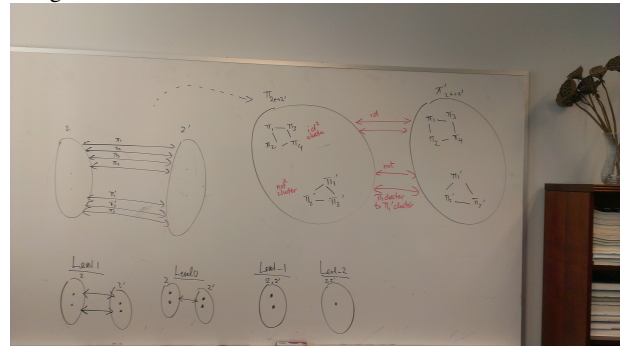 2
2'
π₁
π₂
π₃
π₄
π₁'
π₂'
π₃'
Π₂↔₂'
π₁ π₃
π₂ π₄
id²
cluster
not²
cluster
π₁'
π₂' π₃'
id
not
π₁ cluster
to π₁' cluster
π'₂↔₂'
π₁ π₃
π₂ π₄
π₁'
π₂'
Level 1
2 2'
Level 0
2 2'
Level -1
2, 2'
Level -2